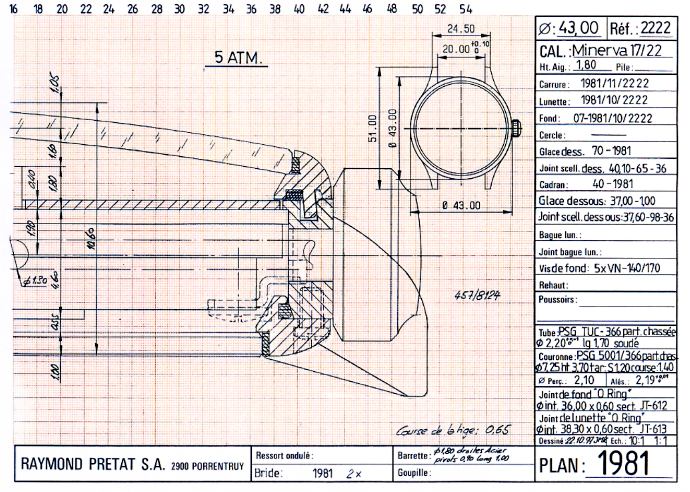 16 18 20 22 24 26 28 30 32 34 36 38 40 42 44 46 48 50 52 54
5 ATM.
24.50
20.00 +0.10 0
51.00
Ø 43.00
Ø 43.00
1.05
1.60
1.80
0.40
1.90
10.60
Ø 1.30
4.60
0.55
1.00
457/8124
Course de la tige: 0,65
Ø: 43,00 Réf.: 2222
CAL.: Minerva 17/22
Ht. Aig.: 1,80 Pile:
Carrure: 1981/11/2222
Lunette: 1981/10/2222
Fond: 07-1981/10/2222
Cercle:
Glace dess. 70-1981
Joint scell. dess. 40,10-65-36
Cadran: 40-1981
Glace dessous: 37,00-1,00
Joint scell. dessous: 37,60-98-36
Bague lun.:
Joint bague lun.:
Vis de fond: 5xVN-140/170
Rehaut:
Poussoirs:
Tube: PSG TUC-366 part. chassée
Ø 2,20 lg 1,70 soudé
Couronne: PSG 5001/366 part. chas.
Ø7,25 ht 3,70 tar: S1,20 course: 1,40
Ø Perç.: 2,10 Alés.: 2,19
Joint de fond "O Ring"
Ø int. 36,00 x 0,60 sect. JT-612
Joint de lunette "O Ring"
Ø int. 38,30 x 0,60 sect. JT-613
Dessiné 22.10.97 Ech.: 10:1 1:1
PLAN: 1981
RAYMOND PRETAT S.A. 2900 PORRENTRUY
Ressort ondulé:
Bride: 1981 2x
Barrette: Ø1,80 droites Acier
pivots 0,90 long 1,00
Goupille: